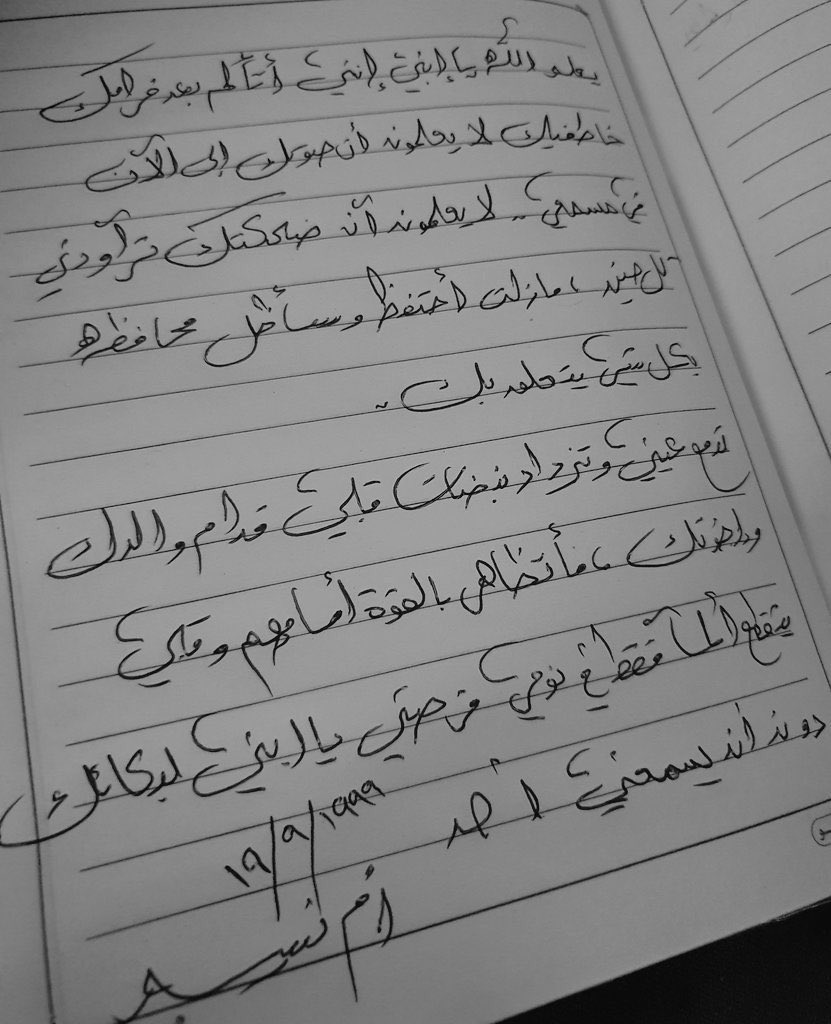 يعلم الله يا إبني إنني أتألم بعد فراقك
خاطفيك لا يعلمون أن صوتك إلى الآن
في مسمعي .. لا يعلمون أن ضحكتك تراودني
كل حين ، مازلت أحتفظ وسأظل محافظه
بكل شيء يتعلق بك ..
تدمع عيني وتزداد نبضات قلبي قدام والدك
وإخوتك ، فأتظاهر بالقوة أمامهم وقلبي
يتقطع ألماً فقط في نومي فرصتي يا ابني لبكائك
دون أن يسمعني أحد
١٩/٩/١٩٩٩
أم نسيم